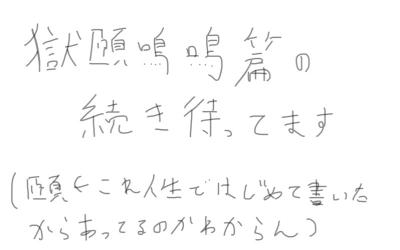 獄頤鳴鳴篇の
続き待ってます
(頤←これ人生ではじめて書いた
からあってるのかわからん)